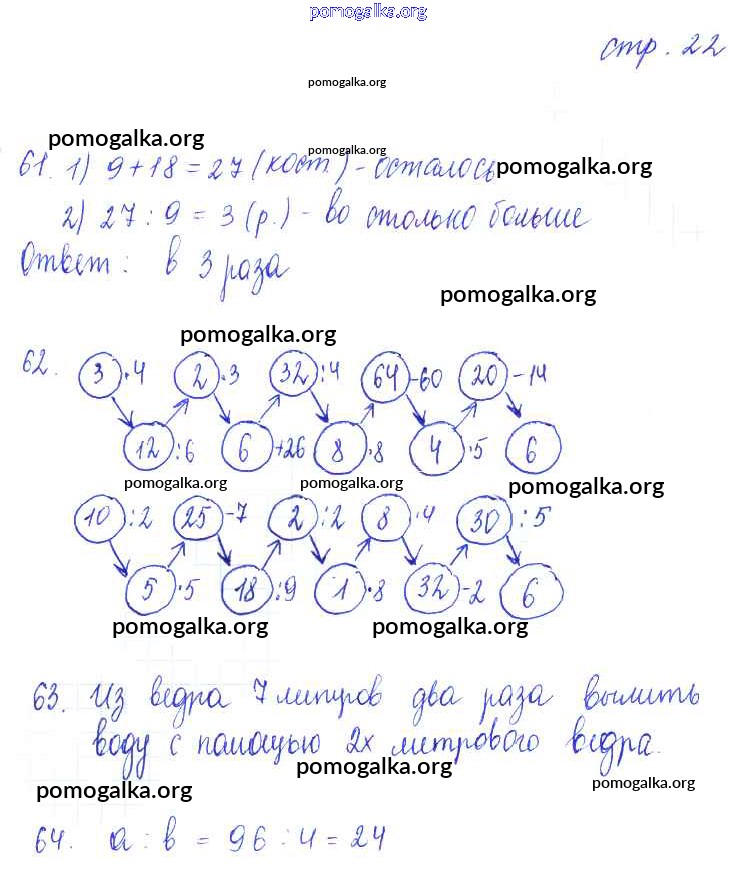 pomogalka.org
стр. 22
pomogalka.org
pomogalka.org pomogalka.org
61. 1) 9 + 18 = 27 (кост.) - осталось pomogalka.org
2) 27 : 9 = 3 (р.) - во столько больше
Ответ: в 3 раза
pomogalka.org
pomogalka.org
62. 3 · 4 2 · 3 32 : 4 64 - 60 20 - 14
12 : 6 6 + 26 8 · 8 4 · 5 6
pomogalka.org pomogalka.org pomogalka.org
10 : 2 25 - 7 2 : 2 8 · 4 30 : 5
5 · 5 18 : 9 1 · 8 32 - 2 6
pomogalka.org pomogalka.org
63. Из ведра 7 литров два раза вылить
воду с помощью 2х литрового ведра.
pomogalka.org
pomogalka.org pomogalka.org
64. a : b = 96 : 4 = 24